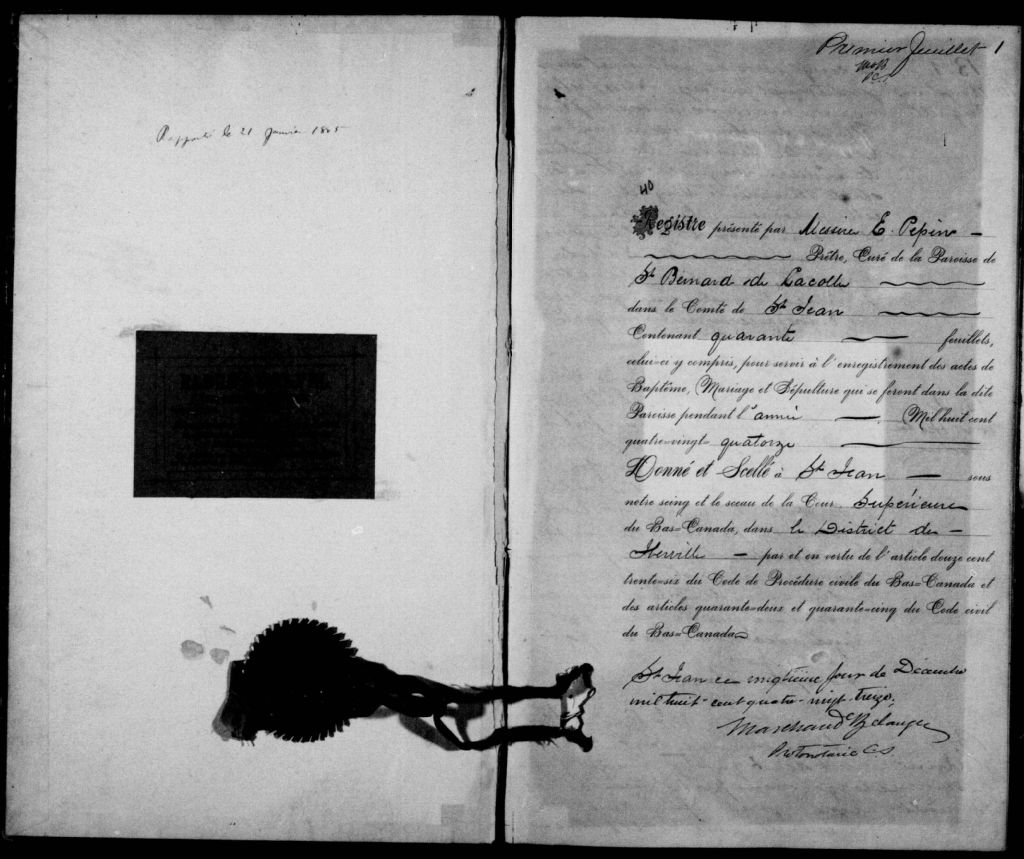 Rapporté le 21 Janvier 1895
Premier feuillet 1
P.C.S.
40
Registre présenté par Messire E. Pépin
Prêtre, Curé de la Paroisse de
St Bernard de Lacolle
dans le Comté de St Jean
Contenant quarante feuillets,
celui-ci y compris, pour servir à l'enregistrement des actes de
Baptême, Mariage et Sépulture qui se feront dans la dite
Paroisse pendant l'année Mil huit cent
quatre-vingt quatorze
Donné et Scellé à St Jean sous
notre seing et le sceau de la Cour Supérieure
du Bas=Canada, dans le District de
Iberville par et en vertu de l'article douze cent
trente=six du Code de Procédure civile du Bas=Canada et
des articles quarante=deux et quarante=cinq du Code civil
du Bas=Canada
St Jean ce vingtième jour de Décembre
mil huit-cent quatre-vingt-treize.
Marchand & Belanger
Protonotaire C.S.